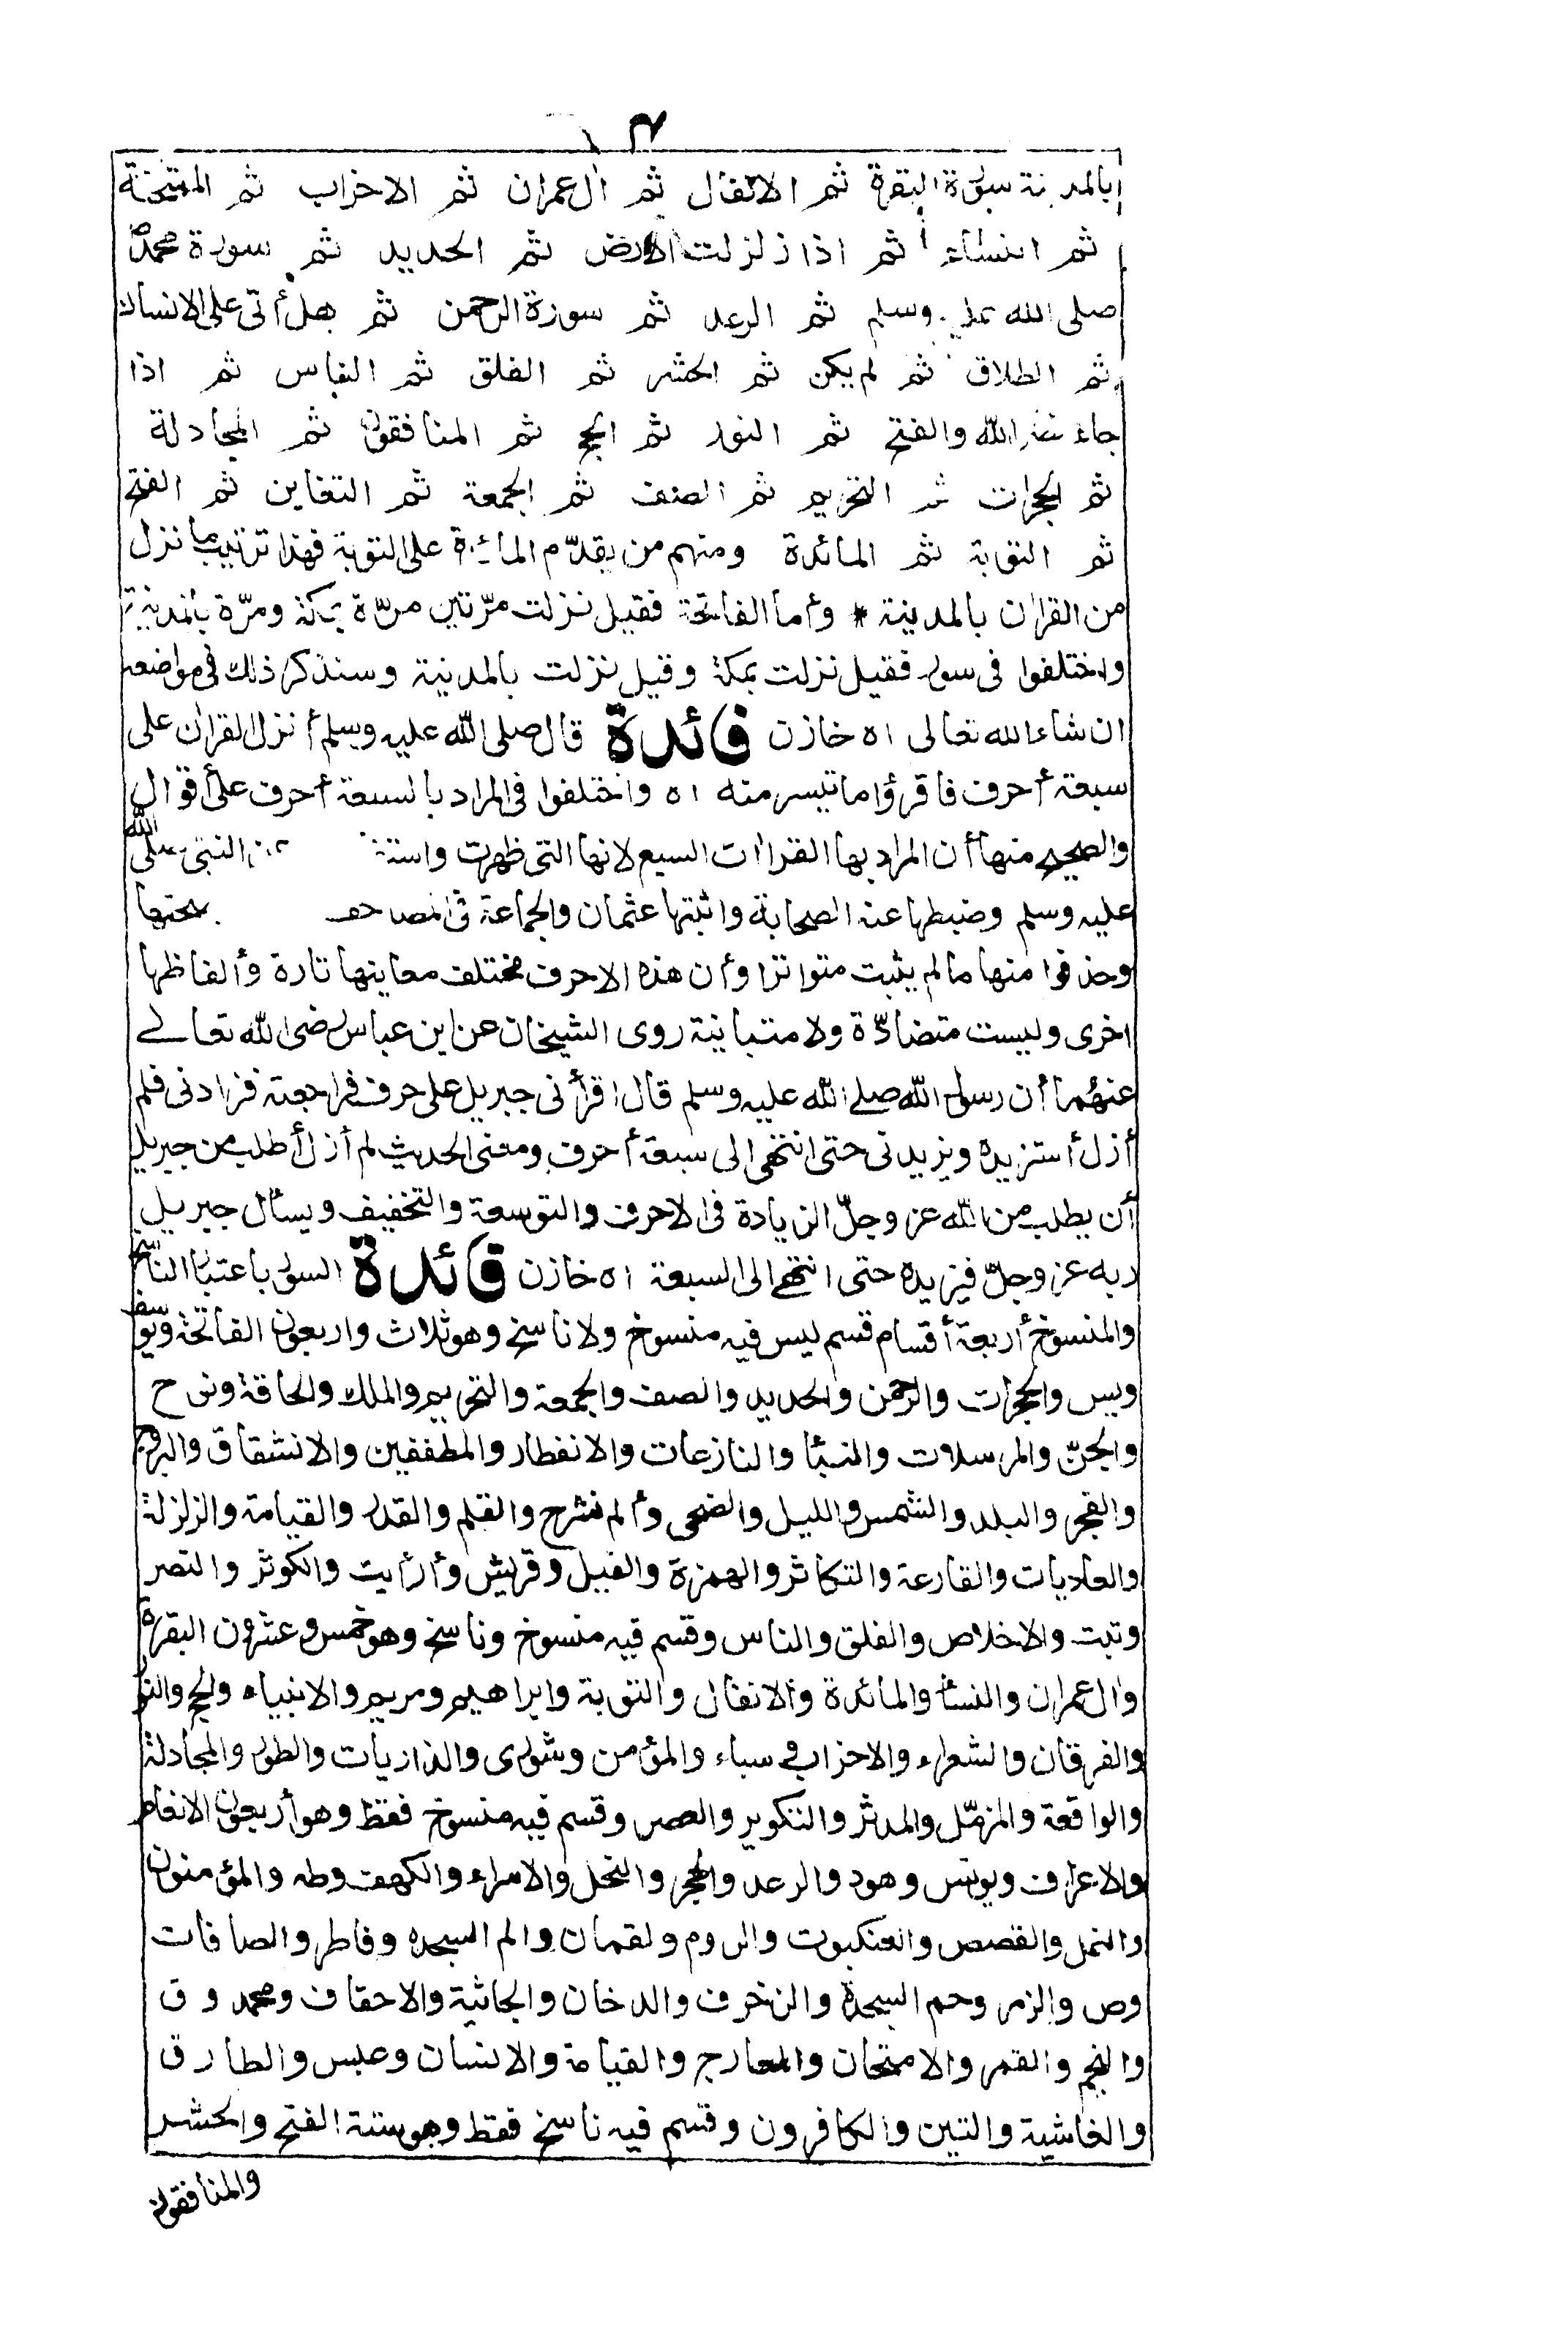 ٣
بالمدينة سورة البقرة ثم الانفال ثم اٰل عمران ثم الاحزاب ثم الممتحنة
ثم النساء ثم اذا زلزلت الارض ثم الحديد ثم سورة محمد
صلى الله عليه وسلم ثم الرعد ثم سورة الرحمن ثم هل أتى على الانسان
ثم الطلاق ثم لم يكن ثم الحشر ثم الفلق ثم الناس ثم اذا
جاء نصر الله والفتح ثم النور ثم الحج ثم المنافقون ثم المجادلة
ثم الحجرات ثم التحريم ثم الصف ثم الجمعة ثم التغابن ثم الفتح
ثم التوبة ثم المائدة ومنهم من يقدّم المائدة على التوبة فهذا ترتيب ما نزل
من القراٰن بالمدينة * وأما الفاتحة فقيل نزلت مرّتين مرّة بمكة ومرّة بالمدينة
واختلفوا فى سور فقيل نزلت بمكة وقيل نزلت بالمدينة وسنذكر ذلك فى مواضعه
ان شاء الله تعالى اه خازن فائدة قال صلى الله عليه وسلم أنزل القراٰن على
سبعة أحرف فاقرؤا ما تيسر منه اه واختلفوا فى المراد بالسبعة أحرف على أقوال
والصحيح منها أن المراد بها القراات السبع لانها التى ظهرت النبى صلى الله
عليه وسلم وضبطها عنه الصحابة واثبتها عثمان والجماعة فى المصاحف
وحذفوا منها ما لم يثبت متواترا وأن هذه الاحرف مختلف معاينها تارة وألفاظها
اخرى وليست متضادّة ولا متباينة روى الشيخان عن ابن عباس رضى الله تعالے
عنهُما أن رسول الله صلے الله عليه وسلم قال اقرأنى جبريل على حرف فراجعته فزادنى فلم
أزل أستزيده ويزيدنى حتى انتهى الى سبعة أحرف ومعنى الحديث لم أزل أطلب من جبريل
أن يطلب من الله عز وجلّ الزيادة فى الاحرف والتوسعة والتخفيف ويسأل جبريل
ربه عز وجلّ فيزيده حتى انتهى الى السبعة اه خازن فائدة السور باعتبار الناسخ
والمنسوخ أربعة أقسام قسم ليس فيه منسوخ ولا ناسخ وهو ثلاث واربعون الفاتحة ويوسف
ويس والحجرات والرحمن والحديد والصف والجمعة والتحريم والملك والحاقة ونوح
والجنّ والمرسلات والنبأ والنازعات والانفطار والمطففين والانشقاق والبروج
والفجر والبلد والشمس والليل والضحى وألم نشرح والقلم والقدر والقيامة والزلزلة
والعاديات والقارعة والتكاثر والهمزة والفيل وقريش وأرأيت والكوثر والنصر
وتبت والاخلاص والفلق والناس وقسم فيه منسوخ وناسخ وهو خمس وعشرون البقرة
واٰل عمران والنسأ والمائدة والانفال والتوبة وابراهيم ومريم والانبياء والحج والنور
والفرقان والشعراء والاحزاب فے سباء والمؤمن وشورى والذاريات والطور والمجادلة
والواقعة والمزمّل والمدثر والتكوير والعصر وقسم فيه منسوخ فقط وهو أربعون الانعام
والاعراف ويونس وهود والرعد والحجر والنحل والاسراء والكهف وطه والمؤمنون
والنمل والقصص والعنكبوت والروم ولقمان والم السجده وفاطر والصافات
وص والزمر وحم السجدة والزخرف والدخان والجاثية والاحقاف ومحمد وق
والنجم والقمر والامتحان والمعارج والقيامة والانسان وعبس والطارق
والغاشية والتين والكافرون وقسم فيه ناسخ فقط وهو ستة الفتح والحشر
والمنافقون